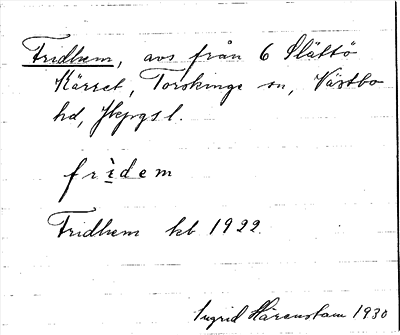 Fridhem, avs från 6 Slättö
Kärret, Torskinge sn, Västbo
hd, Jkpgs l.
frìdem
Fridhem kb 1922.
Ingrid Härenstam 1930